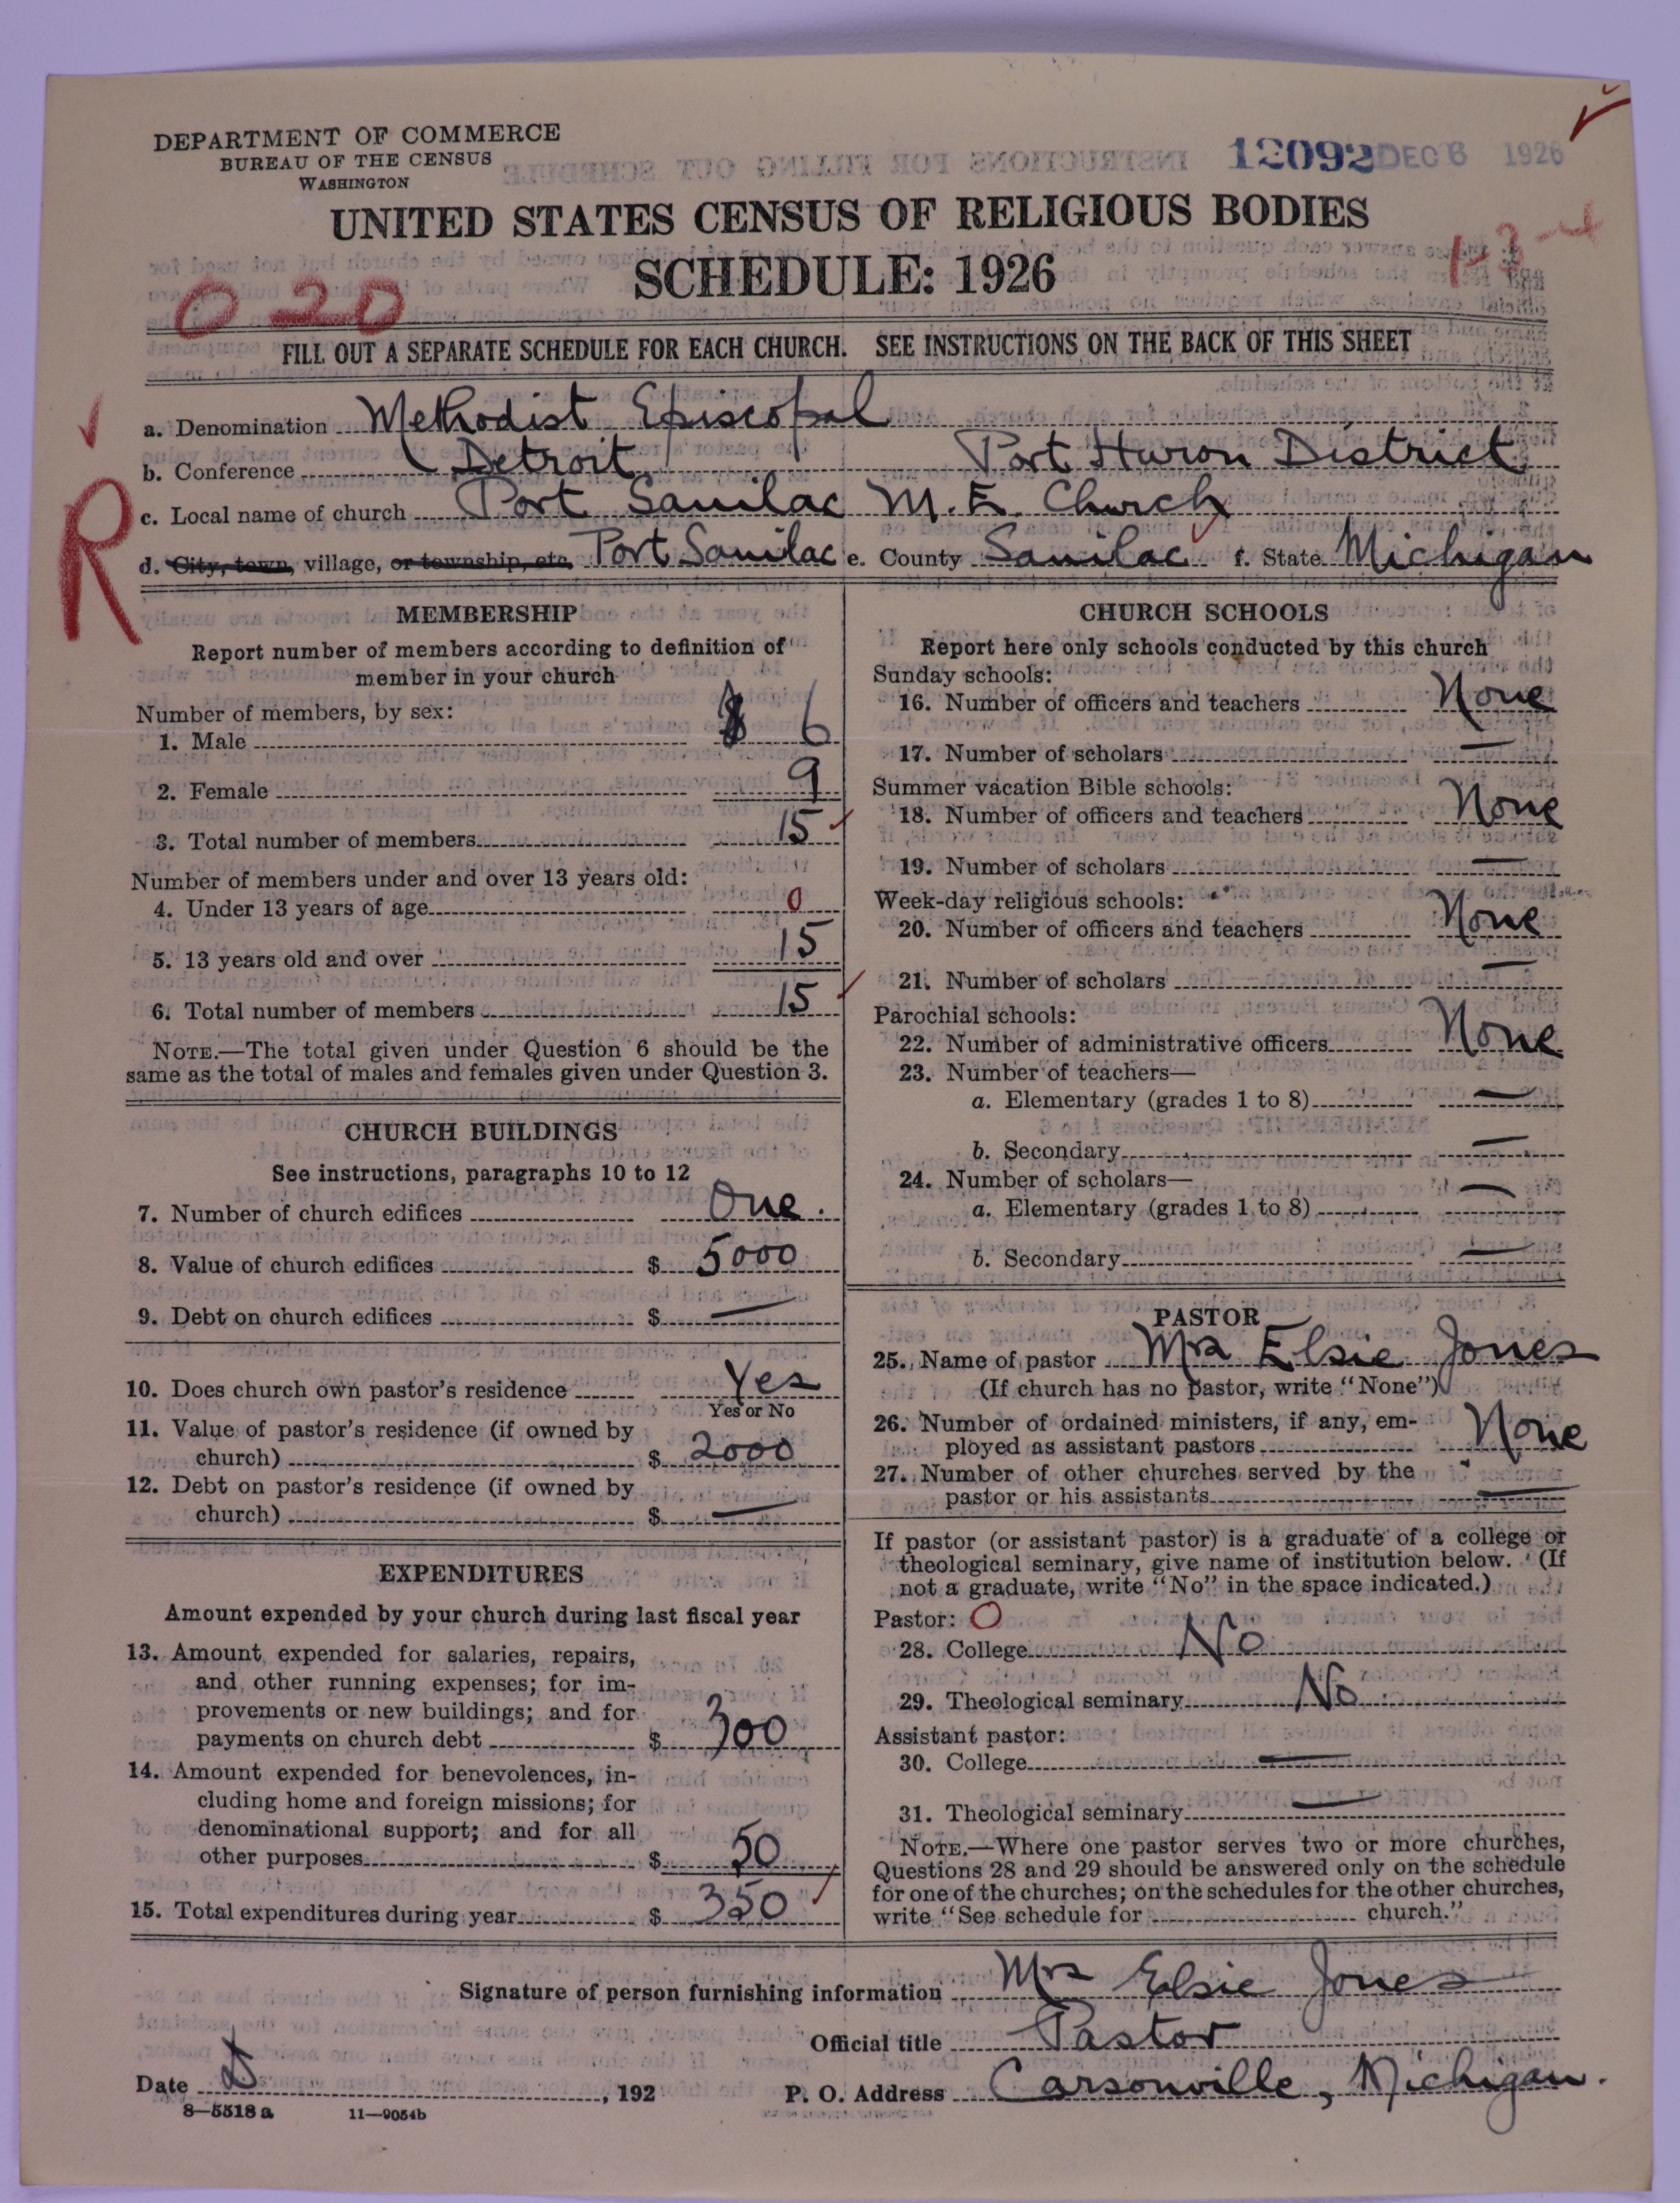 DEPARTMENT OF COMMERCE
BUREAU OF THE CENSUS
WASHINGTON
12092 DEC 6 1926
UNITED STATES CENSUS OF RELIGIOUS BODIES
SCHEDULE: 1926
1-3-4
0 20
FILL OUT A SEPARATE SCHEDULE FOR EACH CHURCH. SEE INSTRUCTIONS ON THE BACK OF THIS SHEET
a. Denomination Methodist Episcopal
b. Conference Detroit Port Huron District
c. Local name of church Port Sanilac M.E. Church
R
d. City, town, village, or township, etc. Port Sanilac e. County Sanilac f. State Michigan
MEMBERSHIP
Report number of members according to definition of
member in your church
Number of members, by sex:
1. Male 6
2. Female 9
3. Total number of members 15
Number of members under and over 13 years old:
4. Under 13 years of age 0
5. 13 years old and over 15
6. Total number of members 15
NOTE.—The total given under Question 6 should be the
same as the total of males and females given under Question 3.
CHURCH BUILDINGS
See instructions, paragraphs 10 to 12
7. Number of church edifices One.
8. Value of church edifices $ 5000
9. Debt on church edifices $ —
10. Does church own pastor's residence Yes
Yes or No
11. Value of pastor's residence (if owned by
church) $ 2000
12. Debt on pastor's residence (if owned by
church) $ —
EXPENDITURES
Amount expended by your church during last fiscal year
13. Amount expended for salaries, repairs,
and other running expenses; for im-
provements or new buildings; and for
payments on church debt $ 300
14. Amount expended for benevolences, in-
cluding home and foreign missions; for
denominational support; and for all
other purposes $ 50
15. Total expenditures during year $ 350
CHURCH SCHOOLS
Report here only schools conducted by this church
Sunday schools:
16. Number of officers and teachers None
17. Number of scholars —
Summer vacation Bible schools:
18. Number of officers and teachers None
19. Number of scholars —
Week-day religious schools:
20. Number of officers and teachers None
21. Number of scholars —
Parochial schools:
22. Number of administrative officers None
23. Number of teachers—
a. Elementary (grades 1 to 8) —
b. Secondary —
24. Number of scholars—
a. Elementary (grades 1 to 8) —
b. Secondary —
PASTOR
25. Name of pastor Mrs Elsie Jones
(If church has no pastor, write "None")
26. Number of ordained ministers, if any, em-
ployed as assistant pastors None
27. Number of other churches served by the
pastor or his assistants —
If pastor (or assistant pastor) is a graduate of a college or
theological seminary, give name of institution below. (If
not a graduate, write "No" in the space indicated.)
Pastor: O
28. College No
29. Theological seminary No
Assistant pastor:
30. College —
31. Theological seminary —
NOTE.—Where one pastor serves two or more churches,
Questions 28 and 29 should be answered only on the schedule
for one of the churches; on the schedules for the other churches,
write "See schedule for church."
Signature of person furnishing information Mrs Elsie Jones
Official title Pastor
Date , 192 P. O. Address Carsonville, Michigan.
8—5518 a 11—9054b